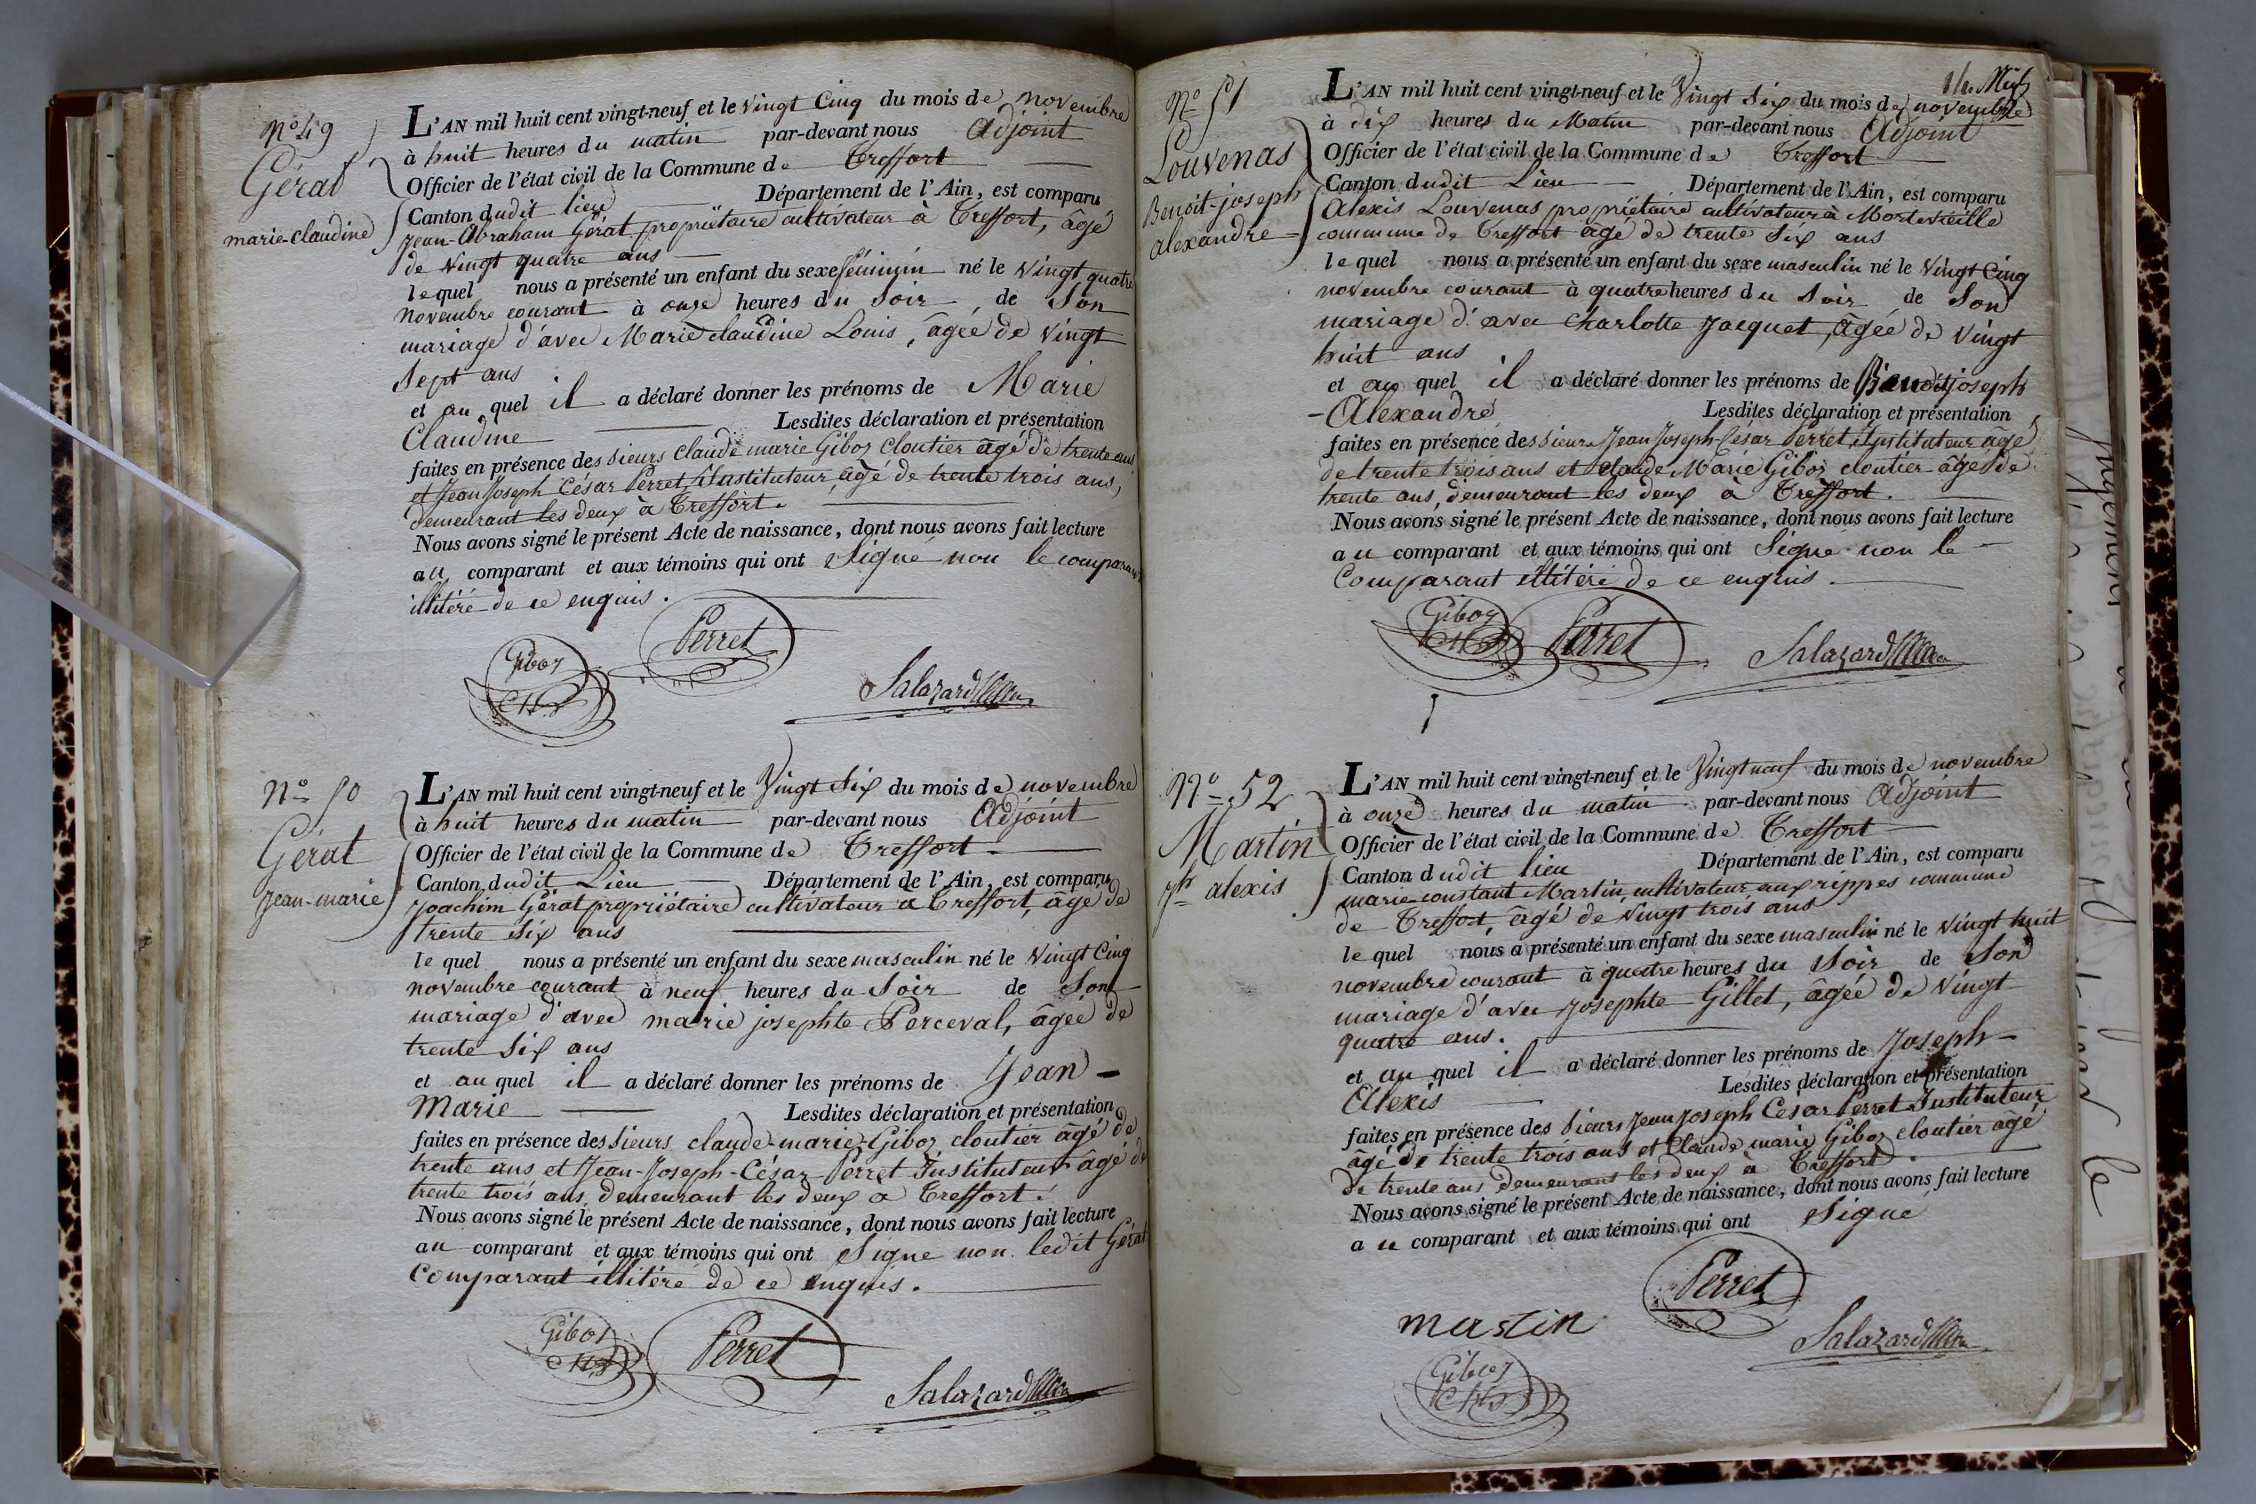 N.° 49
Gérat
marie-claudine
L'AN mil huit cent vingt-neuf et le vingt Cinq du mois de novembre
à huit heures du matin par-devant nous Adjoint
Officier de l'état civil de la Commune de Treffort
Canton dudit lieu Département de l'Ain, est comparu
Jean-Abraham Gérat propriétaire cultivateur à Treffort, âgé
de vingt quatre ans
lequel nous a présenté un enfant du sexe féminin né le vingt quatre
novembre courant à onze heures du Soir de Son
mariage d'avec Marie claudine Louis, âgée de vingt
Sept ans
et au quel il a déclaré donner les prénoms de Marie
Claudine Lesdites déclaration et présentation
faites en présence des Sieurs claude marie Giboz Cloutier âgé de trente ans
et Jean Joseph César Perret, Instituteur, âgé de trente trois ans,
demeurant les deux à Treffort.
Nous avons signé le présent Acte de naissance, dont nous avons fait lecture
au comparant et aux témoins qui ont Signé non le comparant
illitéré de ce enquis.
Giboz
Perret
Salazard
N.° 50
Gérat
Jean-marie
L'AN mil huit cent vingt-neuf et le Vingt Six du mois de novembre
à huit heures du matin par-devant nous Adjoint
Officier de l'état civil de la Commune de Treffort
Canton dudit Lieu Département de l'Ain, est comparu
Joachim Gérat propriétaire cultivateur à Treffort, âgé de
trente Six ans
lequel nous a présenté un enfant du sexe masculin né le Vingt Cinq
novembre courant à neuf heures du Soir de Son
mariage d'avec marie josephte Perceval, âgée de
trente Six ans
et au quel il a déclaré donner les prénoms de Jean-
Marie Lesdites déclaration et présentation
faites en présence des Sieurs claude-marie Giboz cloutier âgé de
trente ans et Jean-Joseph-César Perret Instituteur âgé de
trente trois ans, demeurant les deux a Treffort.
Nous avons signé le présent Acte de naissance, dont nous avons fait lecture
au comparant et aux témoins qui ont Signé non ledit Gérat
Comparant illitéré de ce enquis.
Giboz
Perret
Salazard
N.° 51
Louvenas
Benoit-joseph
alexandre
L'AN mil huit cent vingt-neuf et le Vingt Six du mois de novembre
à dix heures du Matin par-devant nous Adjoint
Officier de l'état civil de la Commune de Treffort
Canton dudit Lieu Département de l'Ain, est comparu
Alexis Louvenas propriétaire cultivateur à Morteveille
commune de Treffort âgé de trente Six ans
lequel nous a présenté un enfant du sexe masculin né le Vingt Cinq
novembre courant à quatre heures du Soir de Son
mariage d'avec Charlotte Jacquet, âgée de Vingt
huit ans
et au quel il a déclaré donner les prénoms de Benoit joseph
-Alexandre Lesdites déclaration et présentation
faites en présence des Sieurs Jean Joseph-César Perret, Instituteur âgé
de trente trois ans et claude Marie Giboz cloutier âgé de
trente ans, demeurant les deux à Treffort.
Nous avons signé le présent Acte de naissance, dont nous avons fait lecture
au comparant et aux témoins qui ont Signé non le
Comparant illitéré de ce enquis.
Giboz
Perret
Salazard
N.° 52
Martin
jh alexis
L'AN mil huit cent vingt-neuf et le Vingt neuf du mois de novembre
à onze heures du matin par-devant nous Adjoint
Officier de l'état civil de la Commune de Treffort
Canton dudit lieu Département de l'Ain, est comparu
marie constant Martin, cultivateur aux rippes commune
de Treffort, âgé de Vingt trois ans
lequel nous a présenté un enfant du sexe masculin né le Vingt huit
novembre courant à quatre heures du Soir de Son
mariage d'avec Josephte Gillet, âgée de Vingt
quatre ans.
et au quel il a déclaré donner les prénoms de Joseph-
Alexis Lesdites déclaration et présentation
faites en présence des Sieurs Jean Joseph César Perret Instituteur
âgé de trente trois ans et Claude marie Giboz cloutier âgé
de trente ans Demeurant les deux à Treffort.
Nous avons signé le présent Acte de naissance, dont nous avons fait lecture
au comparant et aux témoins qui ont Signé
Perret
martin
Salazard
Giboz